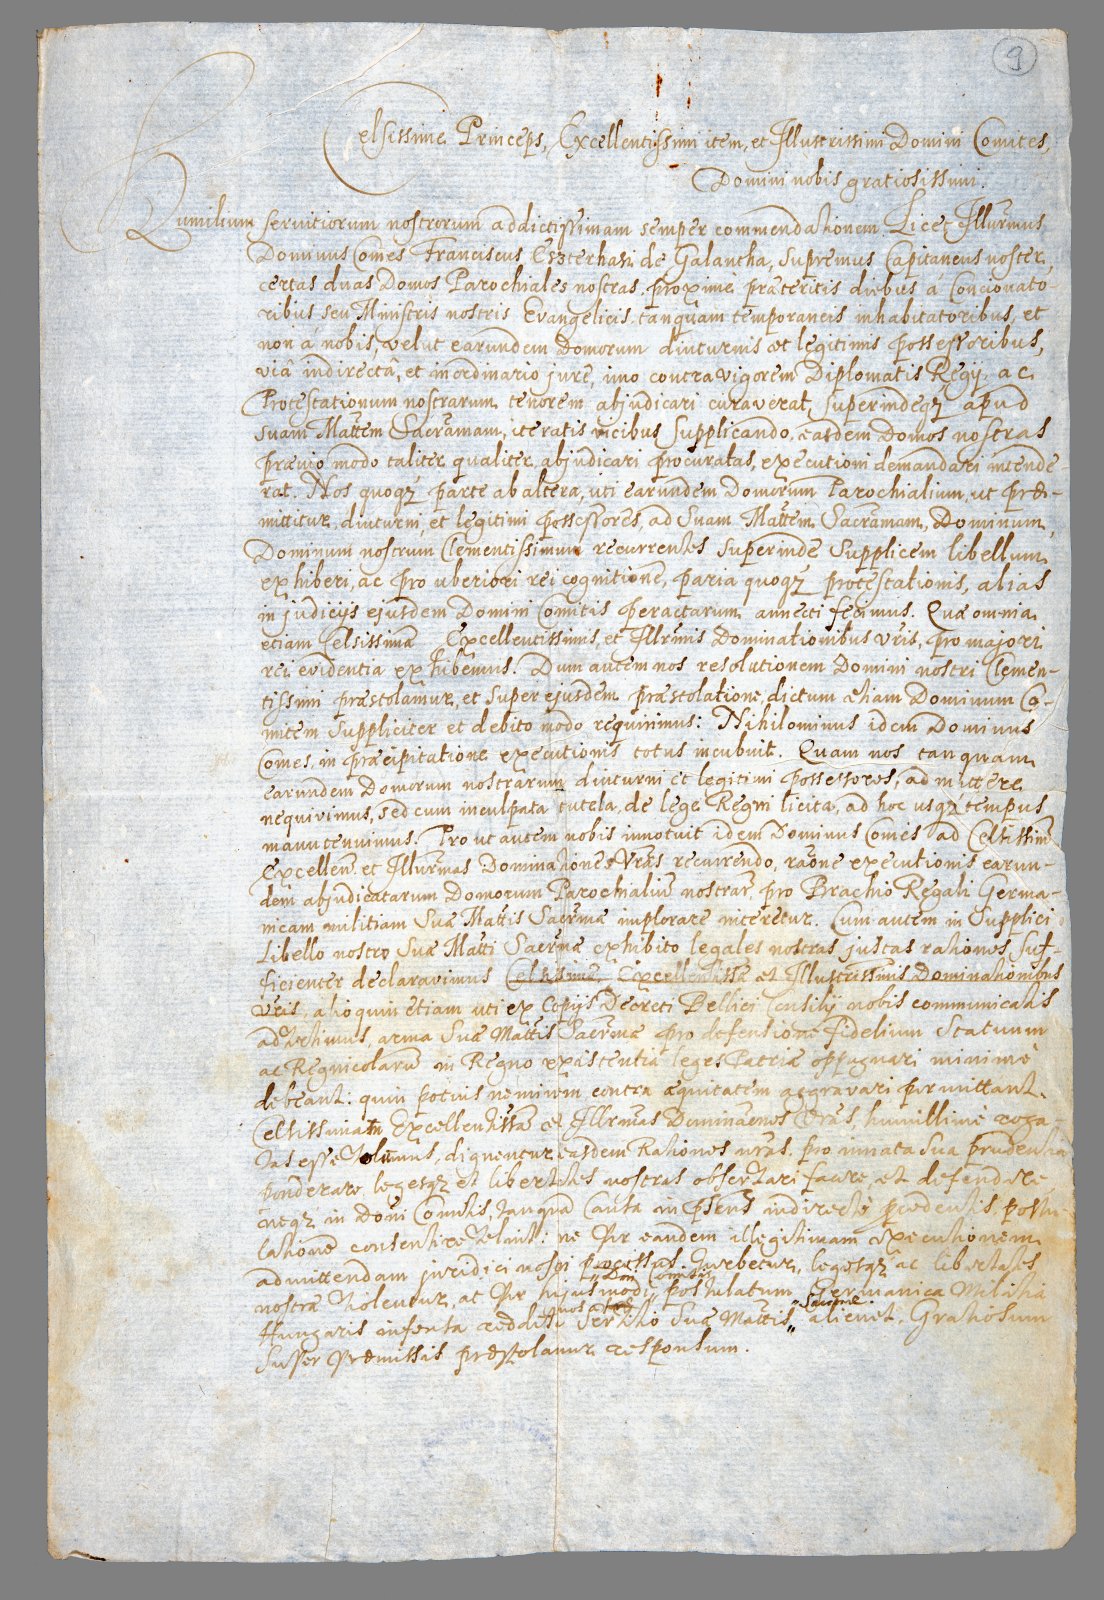 9
Celsissime Princeps, Excellentissimi item, et Illustrissimi Domini Comites,
Domini nobis gratiosissimi.
Humilium servitiorum nostrorum addictissimam semper commendationem. Licet Illurmus
Dominus Comes Franciscus Eszterhasi de Galantha, Supremus Capitaneus noster,
certas duas Domos Parochiales nostras, proximè præteritis diebus a Concionato-
ribus seu Ministris nostris Evangelicis, tanquam temporaneis inhabitatoribus, et
non á nobis, velut earundem Domorum diuturnis et legitimis possessoribus,
viâ indirectâ, et inordinario jure, imo contra vigorem Diplomatis Regij, ac
Protestationum nostrarum tenorem abjudicari curaverat, superindeq3 apud
suam Mattem Sacramam, iteratis vicibus supplicando, easdem Domos nostras
prævio modo taliter qualiter abjudicari procuratas, executioni demandari intende-
rat. Nos quoq3 parte ab altera, uti earundem Domorum Parochialium, ut præ-
mittitur, diuturni, et legitimi possessores, ad Suam Mattem Sacramam, Dominum
Dominum nostrum Clementissimum recurrentes superinde Supplicem libellum
exhiberi, ac pro uberiori rei cognitione, paria quoq3 protestationis, alias
in judicijs ejusdem Domini Comitis peractarum annecti fecimus. Quæ omnia
etiam Celsissimæ Excellentissimis, et Illrimis Dominationibus vris, pro majori
rei evidentia exhibemus. Dum autem nos resolutionem Domini nostri Clemen-
tissimi præstolamur, et super ejusdem præstolatione, dictum etiam Dominum Co-
mitem suppliciter et debito modo requirimus: Nihilominus idem Dominus
Comes, in præcipitatione executionis totus incubuit. Quam nos tanquam
earundem Domorum nostrarum diuturni et legitimi possessores, admittere
nequivimus, sed cum inculpata tutela, de lege Regni licita, ad hoc usq3 tempus
manutenuimus. Prout autem nobis innotuit idem Dominus Comes ad Celsissim
Excellen et Illurmas Dominationes Vras recurrendo, raone executionis earun-
dem abjudicatarum Domorum Parochialiu nostrar, pro Brachio Regali Germa-
nicam militiam Suæ Mattis Sacrmæ implorare niteretur. Cum autem in Supplici
Libello nostro Suæ Matti Sacrmæ exhibito legales nostras justas rationes suf-
ficienter declaravimus Celsissimæ, Excellentissæ et Illustrissimis Dominationibus
vris, alioquin etiam uti ex Copijs Decreti Bellici Consilij nobis communicatis
advertimus, arma Suæ Mattis Sacrmæ pro defensione Fidelium Statuum
ac Regnicolarum in Regno existentia, leges Patriæ oppugnari minimè
debeant: quin potius neminem contra æquitatem aggravari permittant.
Celsissimam Excellentissas et Illrmas Dominaenes Vras, humillimè roga
tas esse volumus, dignentur easdem Rationes nras, pro innata sua prudentia
ponderare, legesq3 et libertates nostras observari facere, et defendere,
neq3 in Dni Comitis, tanquam Causa in psens indirectè procedentis, postu-
lationem consentire velint: ne per eandem illegitimam executionem
admittendam juridici nostri processus turbetur, legesq3 ac libertates
Dni Comitis
nostræ violentur, at per hujusmodi postulatum Germanica Militia
nos
Sacrme.
Hungaris infensa reddita servitio Suæ Mattis alienet. Gratiosum
super præmissis præstolamur responsum.